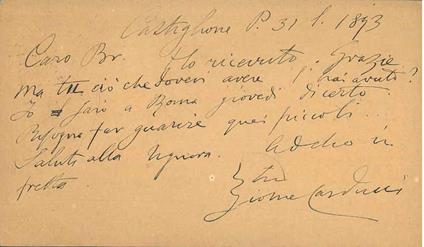 Castiglione P. 31 l. 1893
Caro Br. Ho ricevuto. Grazie
Ma tu ciò che dovevi avere, hai avuto?
Io sarò a Roma giovedì di certo.
Bisogna far guarire quei piccoli.
Saluti alla Signora. Addio in
fretta.
tuo
Giosue Carducci